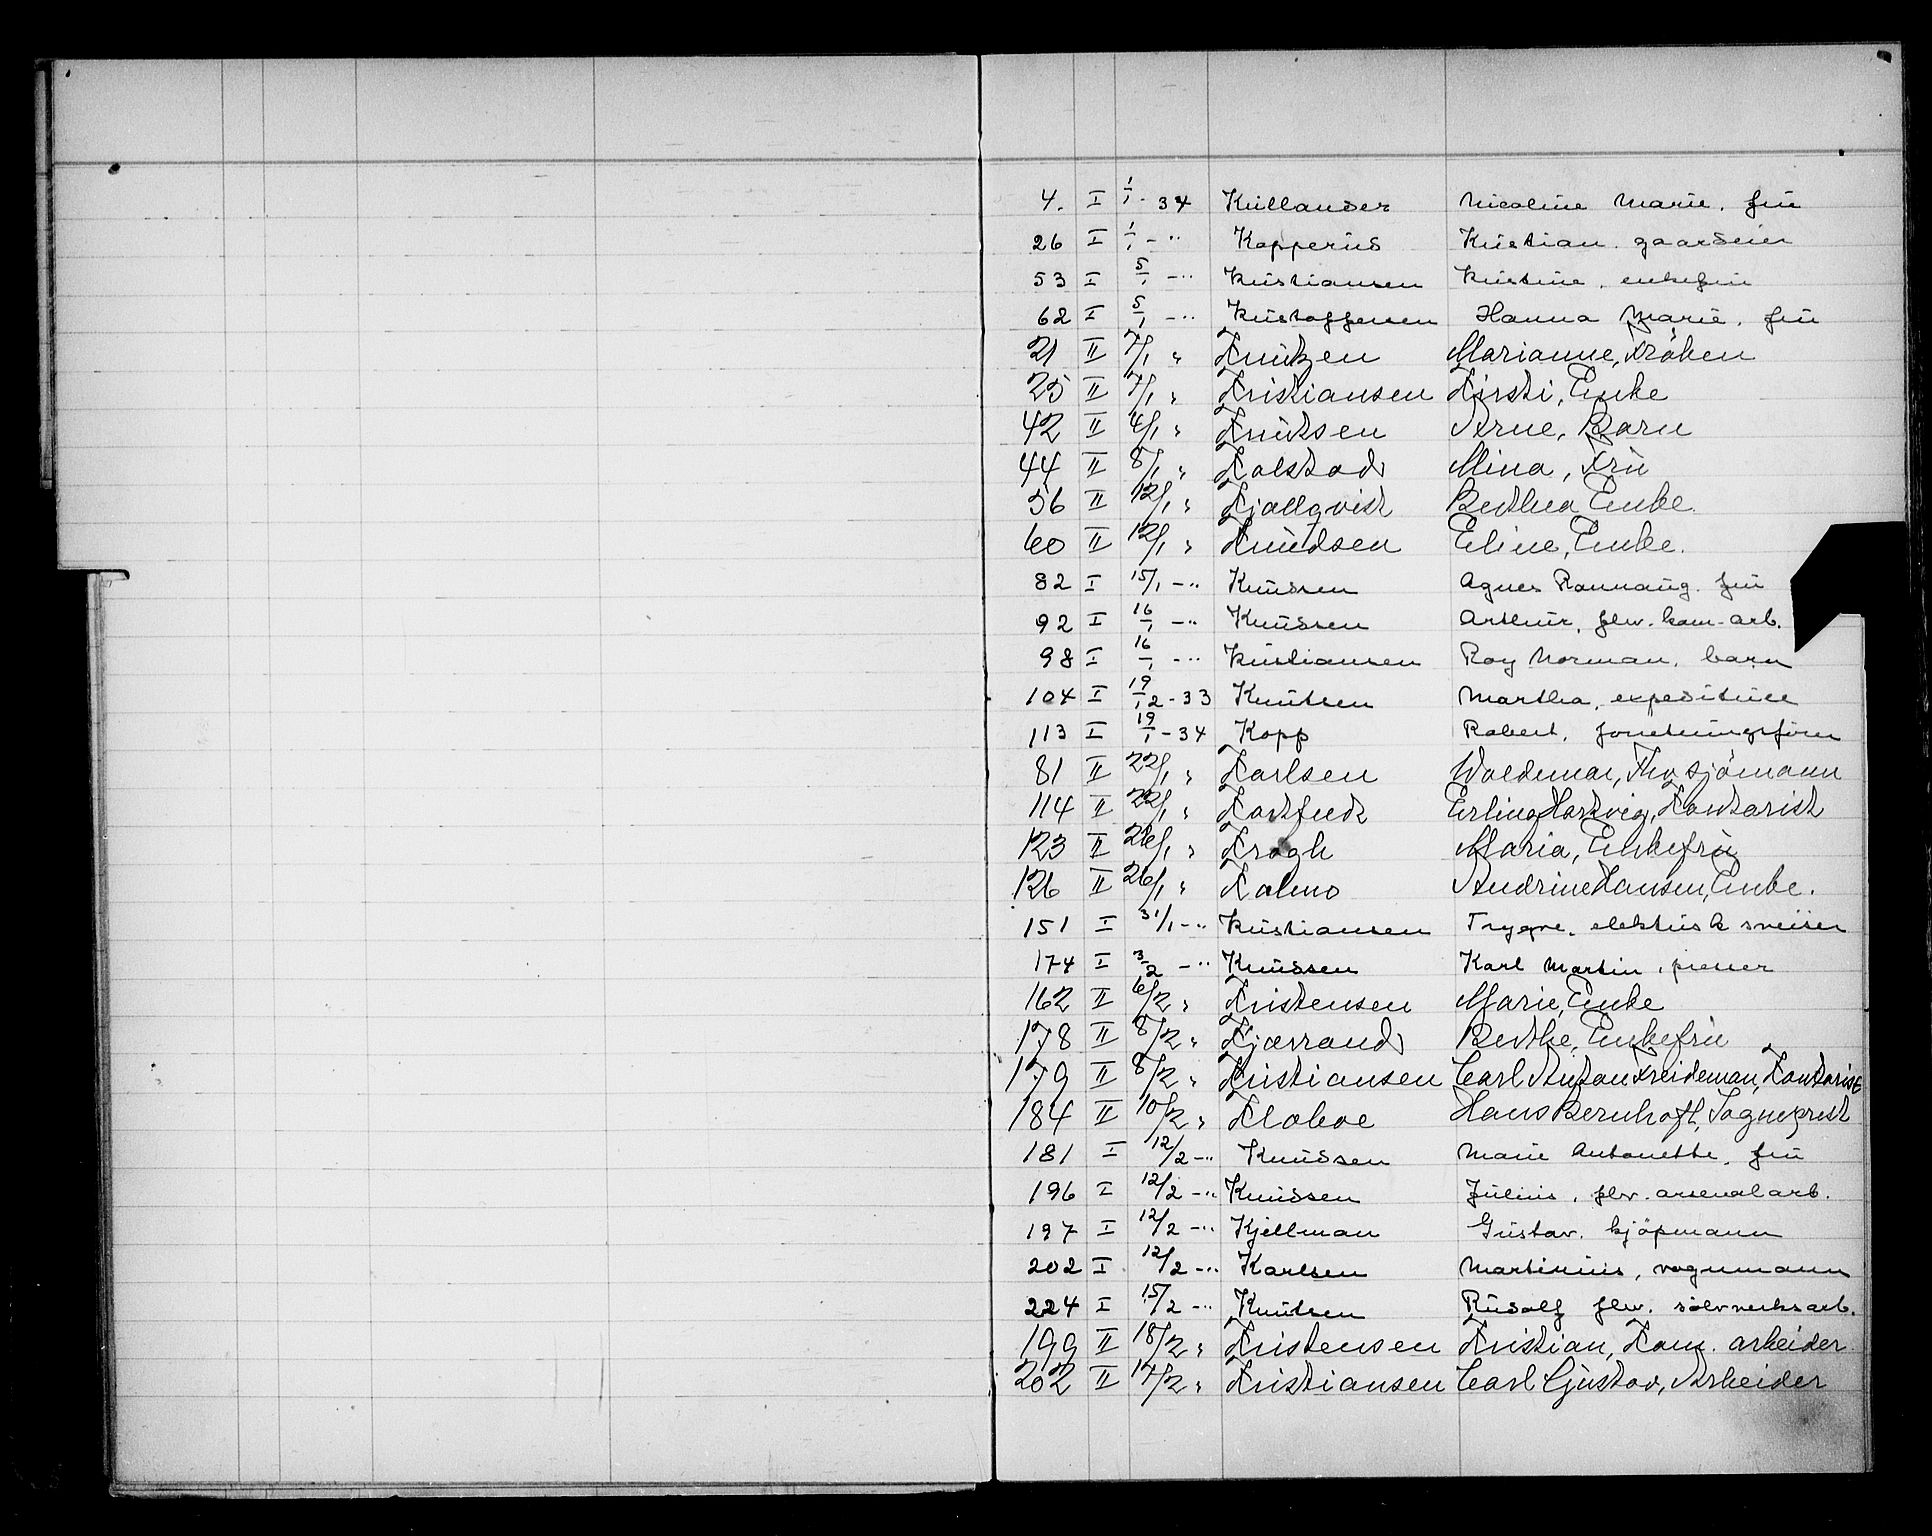 4. I 1/1 - 34 Krillander Nicoline Marie. frü
26 I 1/1 - " Kopperüs Kristian. gaardeier
53 I 5/1 - " Kristiansen Kristine. enkefrü
62 I 5/1 - " Kristoffersen Hanna Marie. frü
21 II 7/1 " Knützen Marianne, Fröken
25 II 7/1 " Kristiansen Kirsti, Enke
42 II 4/1 " Knütsen Arne, Barn
44 II 8/1 " Kolstad Mina, Frü
56 II 12/1 " Kjællqvist Berthea Enke
60 II 12/1 " Knüdsen Eline, Enke.
82 I 15/1 - " Knüdsen Agnes Rannaug. frü
92 I 16/1 - " Knüdsen Arthür, flv. kom-arb.
98 I 16/1 - " Kristiansen Roy Norman. barn
104 I 19/12 - 33 Knütsen Martha. expeditrice
113 I 19/1 - 34 Kopp Robert. forretningsförer
81 II 22/1 " Karlsen Woldemar, Fhv sjömann
114 II 22/1 " Erling Hartvig, Kontorist
123 II 26/1 " Krogh Maria, Enkefrü
126 II 26/1 " Kolmo Andrine Hansen, Enke.
151 I 31/1 - " Kristiansen Trygve. elektrisk sveiser
174 I 3/2 - " Knüdsen Karl Martin, presser
162 II 6/2 " Kristensen Marie, Enke
178 II 8/2 " Kjærrand Berthe, Enkefrü
179 II 8/2 " Kristiansen Carl Anton Freideman, Kontorist
184 II 10/2 " Kloboe Hans Bernhoft, Sogneprest
181 I 12/2 - " Knüdsen Marie Antonette. frü
196 I 12/2 - " Knüdsen Jülius, flv. arsenalarb.
197 I 12/2 - " Kjellman Güstav. kjöpmann
202 I 12/2 - " Karlsen Martinius, vognmann
224 I 15/2 - " Knütsen Rüdolf flv. sölvverksarb.
199 II 18/2 " Kristensen Kristian, Kom. arbeider
202 II 17/2 " Kristiansen Carl Güstav, Arbeider